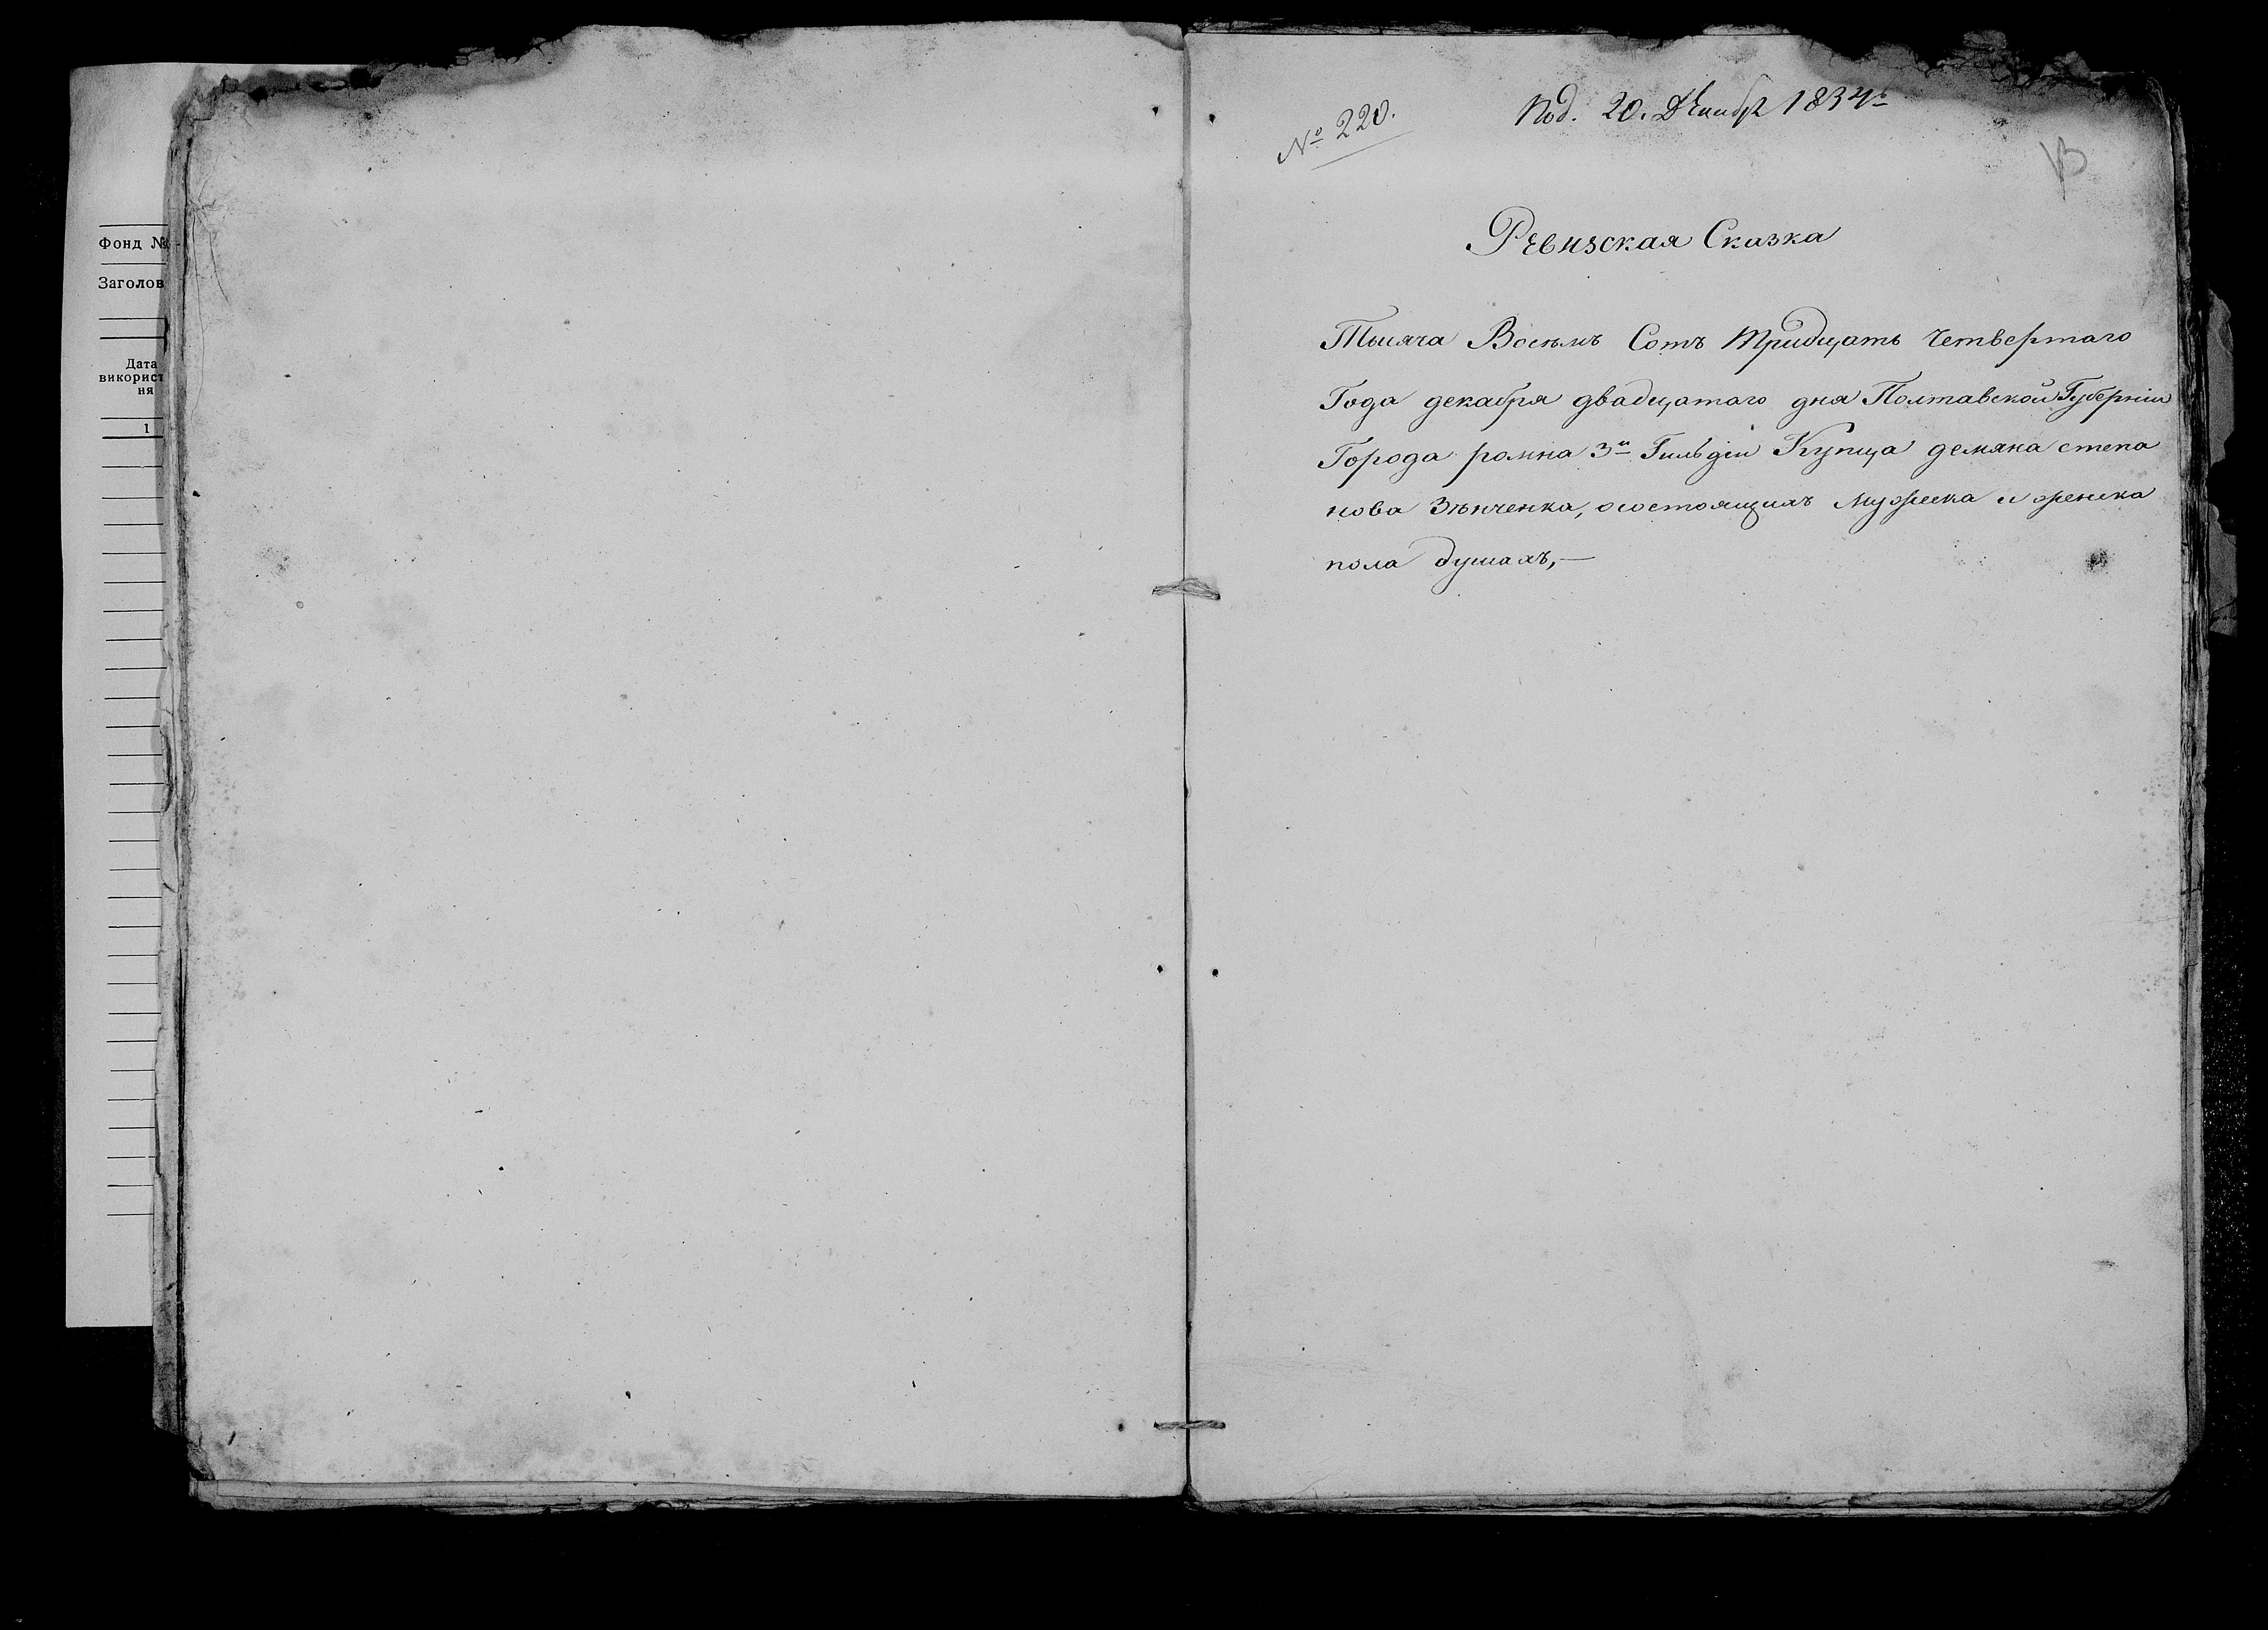 Фонд №
Заголов
Дата
використ
ня
1
№ 220.
Под. 20. Декабр 1834го
Ревизская Сказка
Тысяча Восемъ Сотъ Тридцать Четвертаго
Года декабря двадцатаго дня Полтавской Губерніи
Города ромна 3й Гильдіи Купца демяна степа
нова Зѣнченка, осостоящихъ мужеска и женска
пола душахъ,—